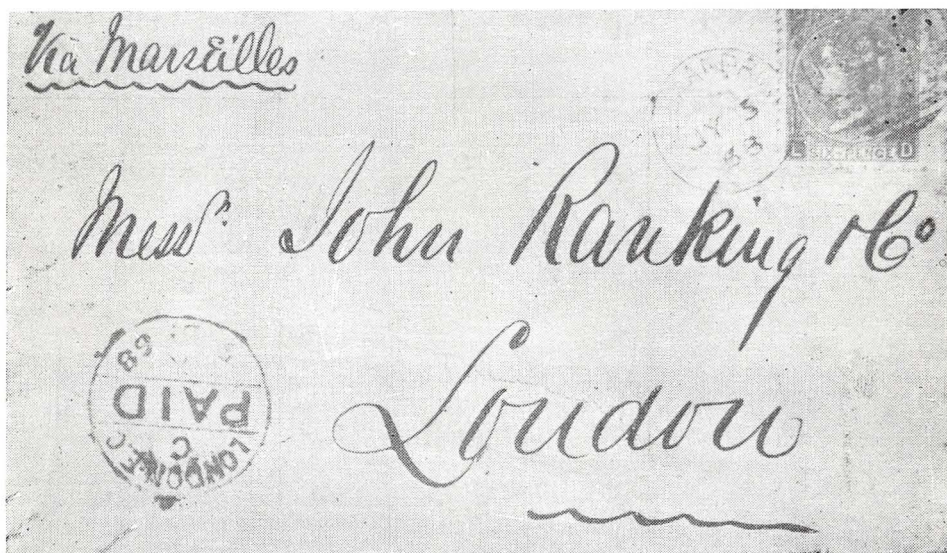 Via Marseilles
JY 3
68
L SIXPENCE D
Messrs. John Ranking & Co
London
LONDON E.C
C
PAID
68